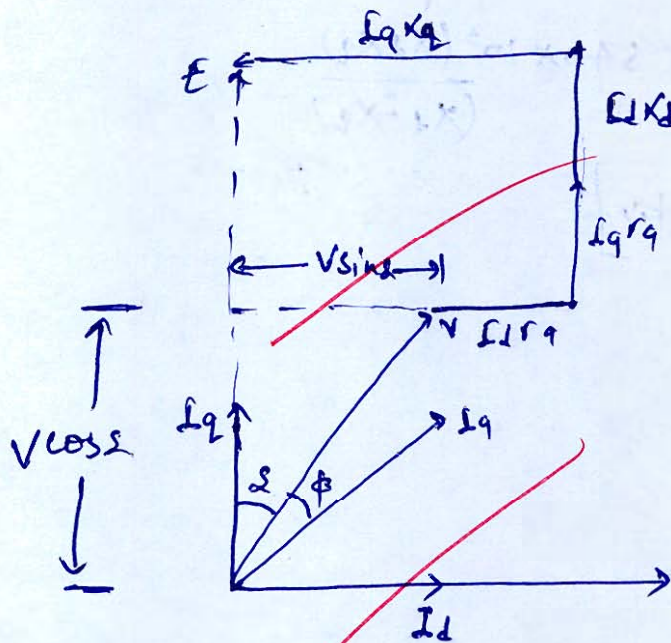 Iq Xq
E
Id Xd
Iq ra
V sin δ
V
Id ra
Iq
Ia
V cos δ
δ
φ
Id